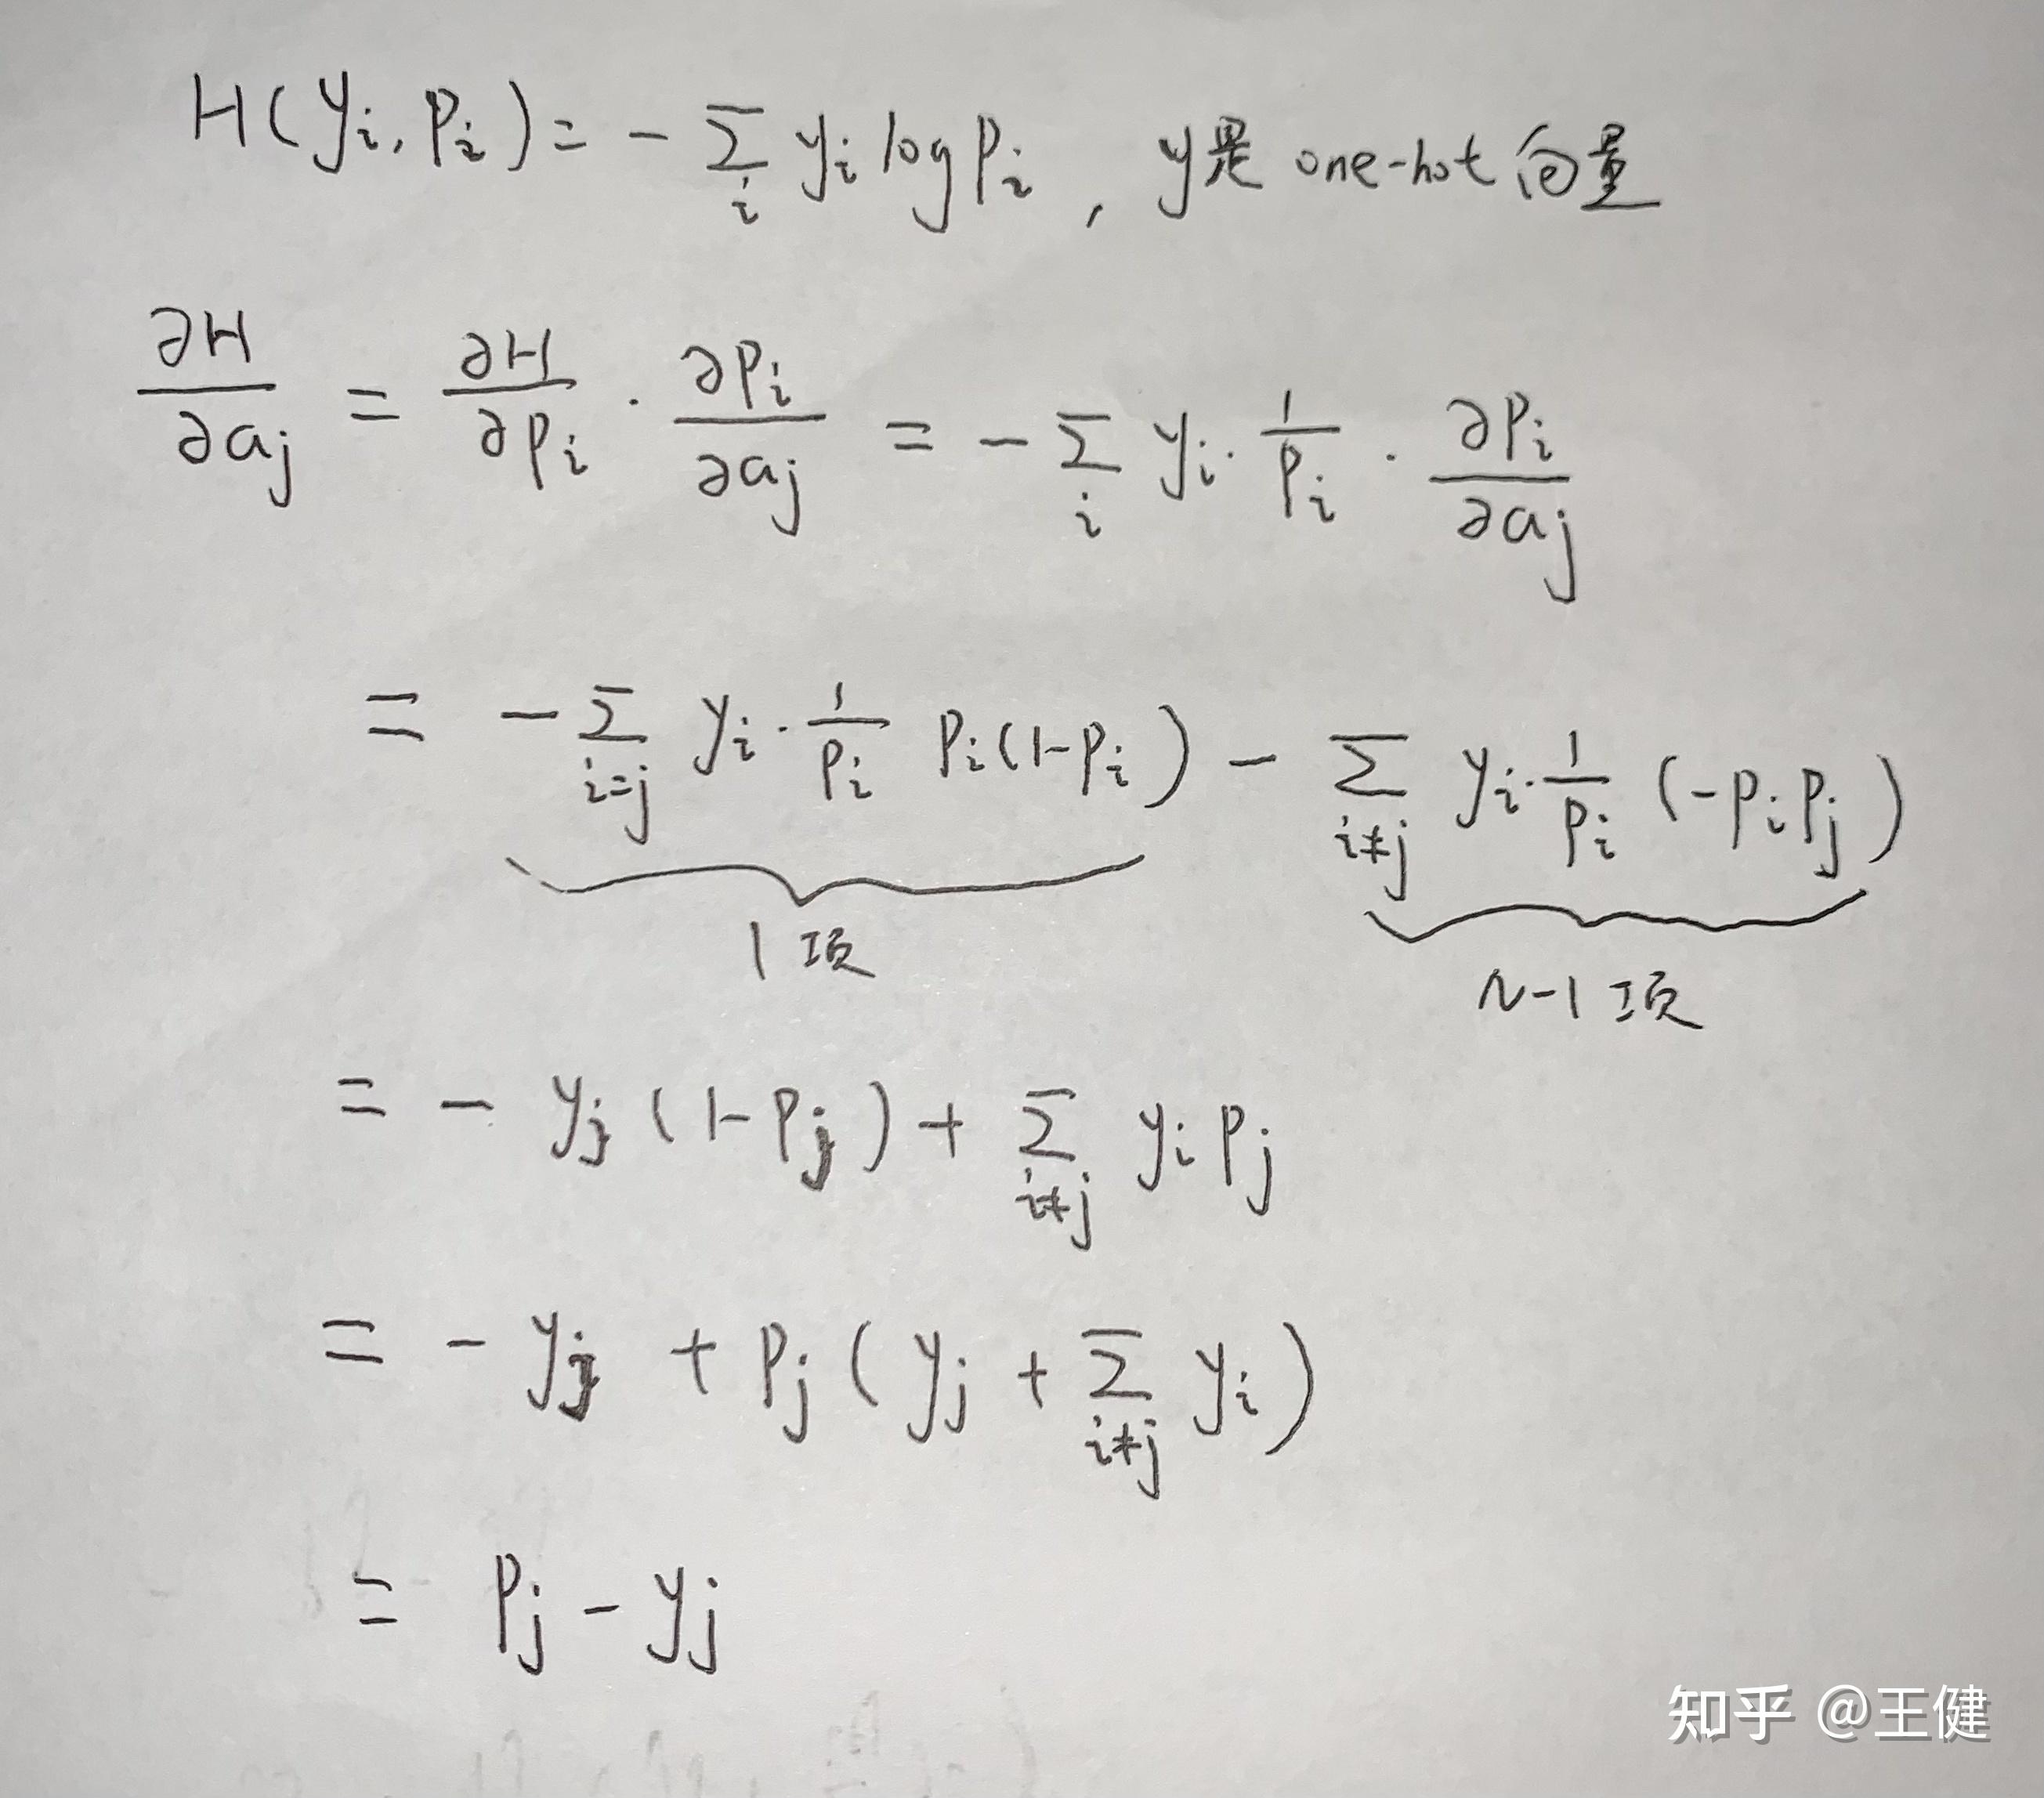 H(yᵢ, pᵢ) = - Σᵢ yᵢ log pᵢ , y是 one-hot 向量
∂H/∂aⱼ = ∂H/∂pᵢ · ∂pᵢ/∂aⱼ = - Σᵢ yᵢ · 1/pᵢ · ∂pᵢ/∂aⱼ
= - Σ_{i=j} yᵢ · 1/pᵢ pᵢ(1-pᵢ) - Σ_{i≠j} yᵢ · 1/pᵢ (-pᵢpⱼ)
1 项 N-1 项
= - yⱼ (1-pⱼ) + Σ_{i≠j} yᵢ pⱼ
= - yⱼ + pⱼ ( yⱼ + Σ_{i≠j} yᵢ )
= pⱼ - yⱼ
知乎 @王健